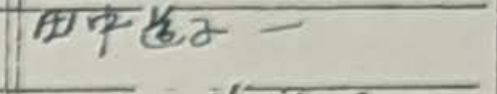 田中道子 一